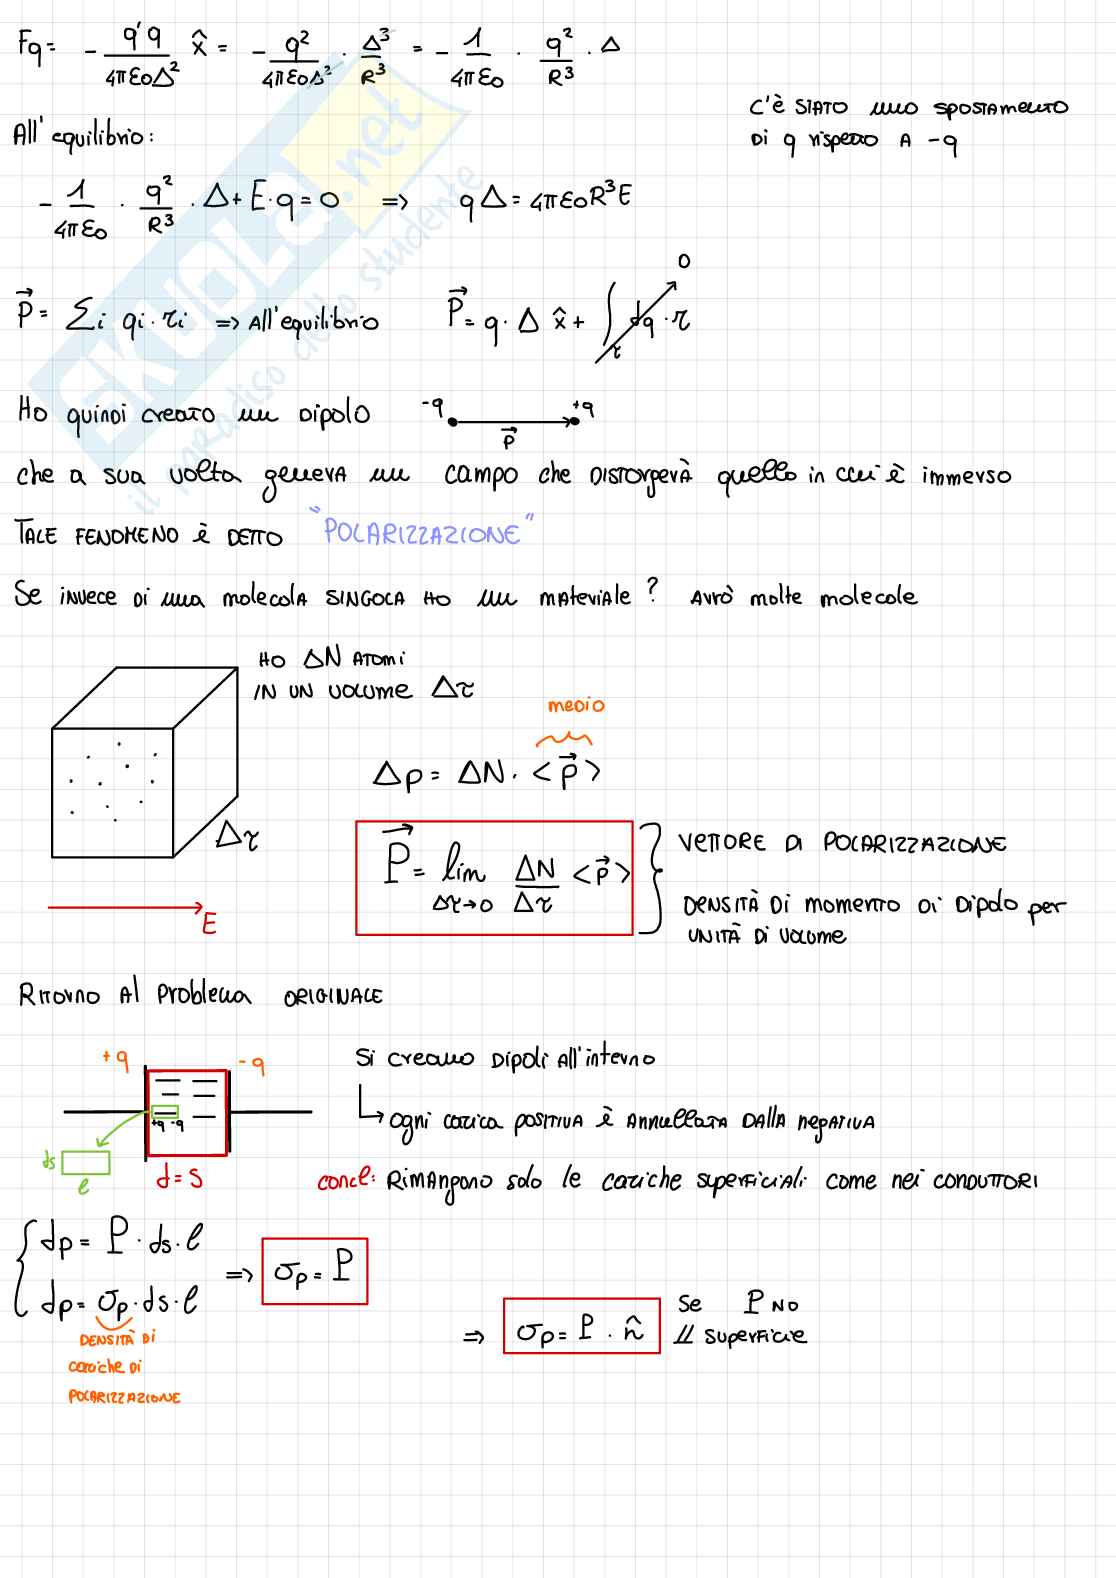 Fq = - q'q / 4πε0Δ² x̂ = - q² / 4πε0Δ² · Δ³ / R³ = - 1 / 4πε0 · q² / R³ · Δ
C'è STATO uno spostamento
Di q rispetto A -q
All'equilibrio:
- 1 / 4πε0 · q² / R³ · Δ + E·q = 0 => qΔ = 4πε0R³E
P⃗ = Σi qi·ri => All'equilibrio P⃗ = q·Δ x̂ + ∫τ dq·r 0
Ho quindi creato un Dipolo -q +q
P⃗
che a sua volta genera un campo che DISTORGERÀ quello in cui è immerso
TALE FENOMENO è DETTO "POLARIZZAZIONE"
Se invece Di una molecola SINGOLA HO un materiale? AVRÒ molte molecole
HO ΔN ATOMI
IN UN VOLUME Δτ
medio
Δp = ΔN · <p⃗>
Δτ
P⃗ = lim Δτ→0 ΔN / Δτ <p⃗>
VETTORE DI POLARIZZAZIONE
DENSITÀ Di momento Di Dipolo per
UNITÀ DI VOLUME
E
Ritorno Al Problema ORIGINALE
+q -q
Si creano Dipoli All'interno
+q -q
ogni carica POSITIVA è ANNULLATA DALLA negativa
ds
l
d = S
concl: RIMANGONO solo le cariche superficiali come nei CONDUTTORI
dp = P · ds · l
dp = σp · ds · l => σp = P
DENSITÀ Di
cariche Di
POLARIZZAZIONE
=> σp = P · n̂ Se P NO
// superficie
SKUOLA.net
il paradiso dello studente